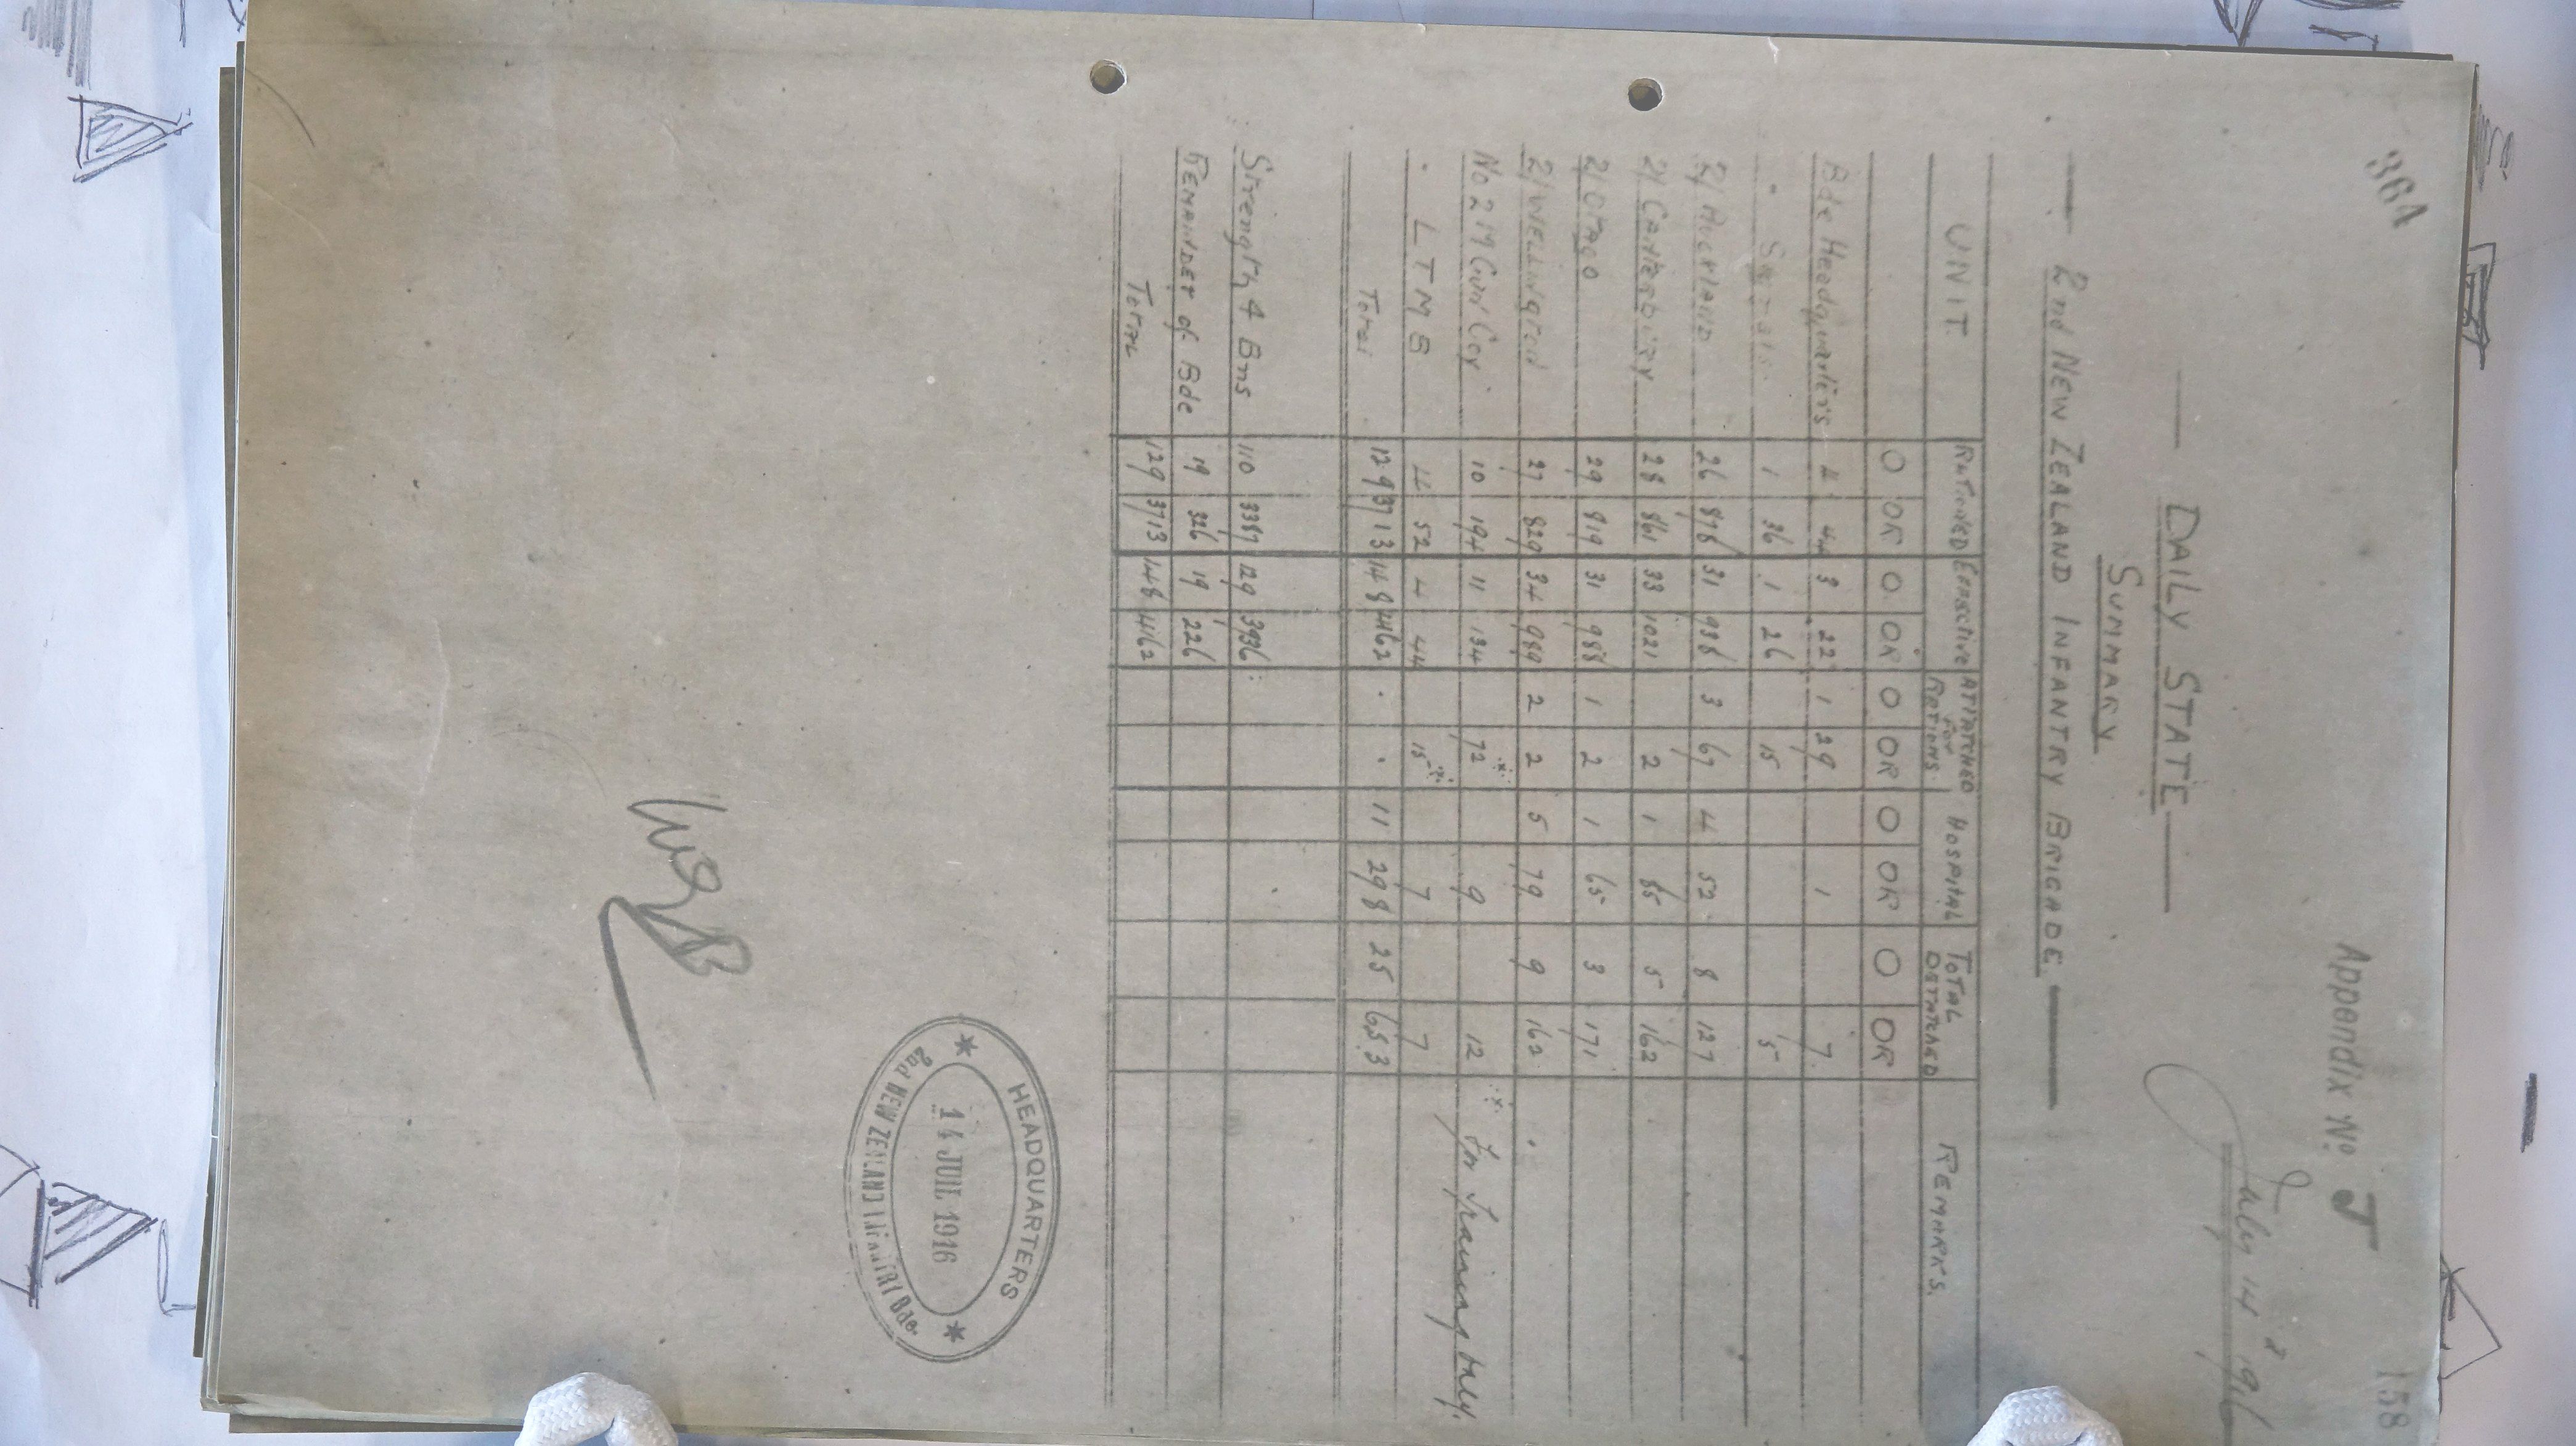 364
158
Appendix No J
July 14th 1916
DAILY STATE
SUMMARY
2nd NEW ZEALAND INFANTRY BRIGADE
UNIT. RATIONED EFFECTIVE ATTATCHED for RATIONS. HOSPITAL TOTAL DETATCHED REMARKS.
O OR O OR O OR O OR O OR
Bde Headquarters 4 44 3 22 1 29 1 7
" SIGNALS. 1 36 1 26 15 5
2/ AUCKLAND 26 878 31 938 3 67 4 52 8 127
2/ CANTERBURY 28 861 33 1021 2 1 85 5 162
2/ OTAGO 29 819 31 988 1 2 1 65 3 171
2/ WELLINGTON 27 829 34 989 2 2 5 79 9 162
No 2 M Gun Coy 10 194 11 134 72 9 12 For training only.
" L T M B 4 52 4 44 15 7 7
Total 129 3713 148 4162 11 298 25 653
Strength 4 Bns 110 3387 129 3936
REMAINDER of Bde 19 326 19 226
TOTAL 129 3713 148 4162
HEADQUARTERS
14 JUIL 1916
2nd NEW ZEALAND INFANTRY Bde.